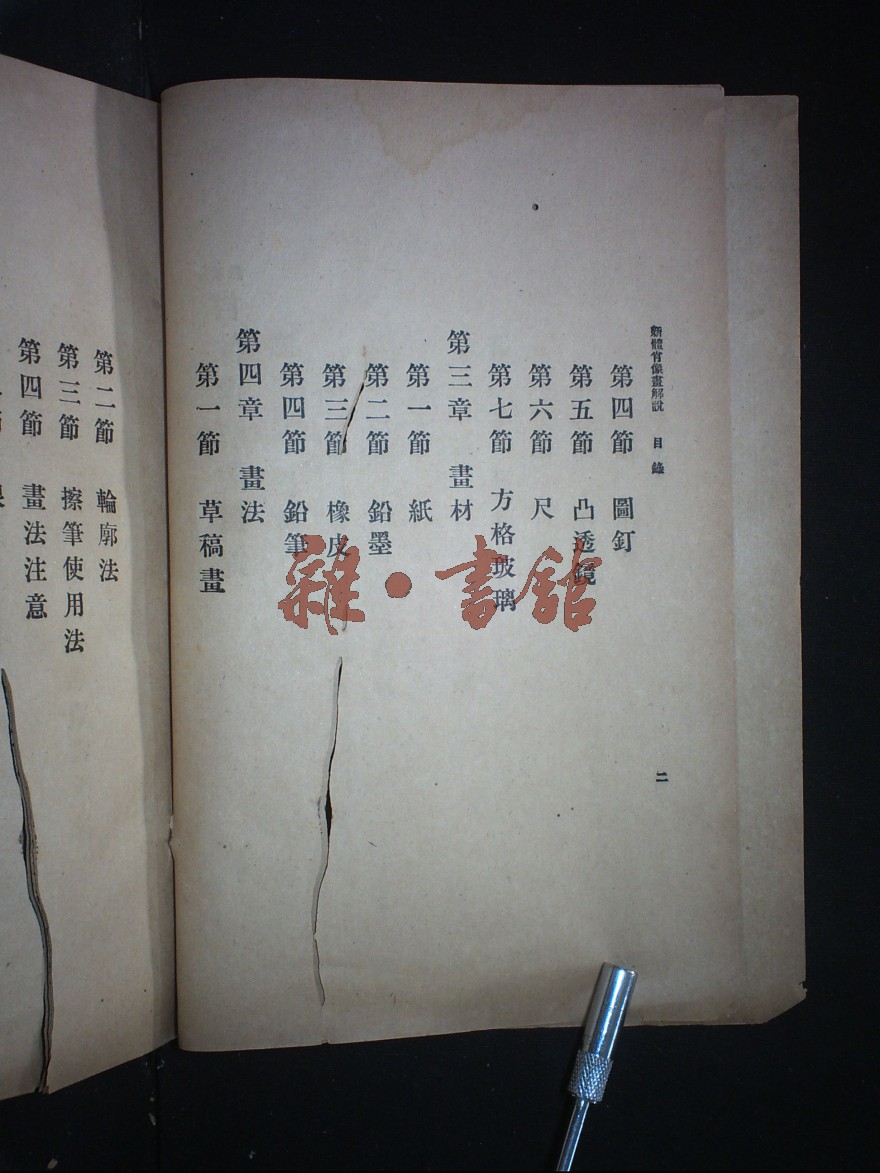 新體肖像畫解說 目錄
二
第四節 圖釘
第五節 凸透鏡
第六節 尺
第七節 方格玻璃
第三章 畫材
第一節 紙
第二節 鉛墨
第三節 橡皮
第四節 鉛筆
第四章 畫法
第一節 草稿畫
第二節 輪廓法
第三節 擦筆使用法
第四節 畫法注意
雜·書館